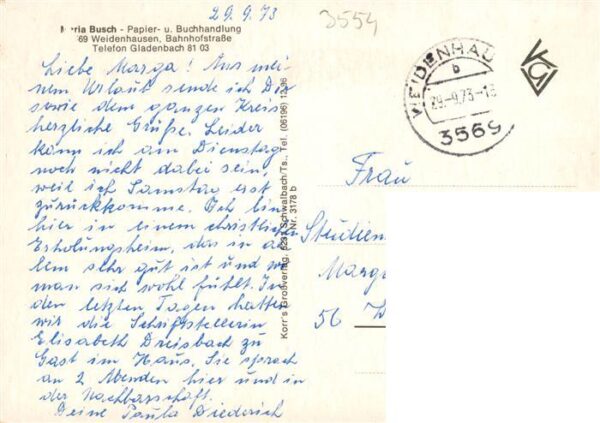 29.9.73
3554
Maria Busch - Papier- u. Buchhandlung
69 Weidenhausen, Bahnhofstraße
Telefon Gladenbach 81 03
Liebe Marga! Aus mei-
nem Urlaub sende ich Dir
sowie dem ganzen Kreis
herzliche Grüße. Leider
kann ich am Dienstag
noch nicht dabei sein,
weil ich Samstag erst
zurückkomme. Ich bin
hier in einem christlichen
Erholungsheim, das in al-
lem sehr gut ist und wo
man sich wohl fühlt. In
den letzten Tagen hatten
wir die Schriftstellerin
Elisabeth Dreisbach zu
Gast im Haus. Sie sprach
an 2 Abenden hier und in
der Nachbarschaft.
Deine Paula Diederich
Korr's Großverlag, 6231 Schwalbach/Ts., Tel. (06196)
Nr. 3178 b
WEIDENHAU
b
29.-9.73-
3569
Frau
Studien
Marga
56 W